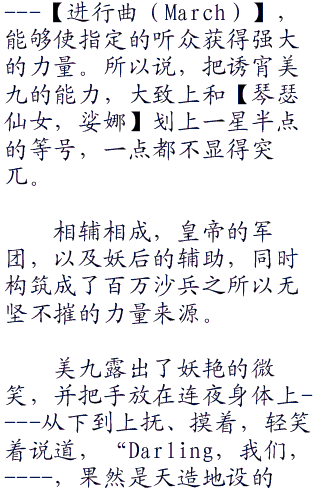 ---【进行曲（March）】，
能够使指定的听众获得强大
的力量。所以说，把诱宵美
九的能力，大致上和【琴瑟
仙女，娑娜】划上一星半点
的等号，一点都不显得突
兀。
相辅相成，皇帝的军
团，以及妖后的辅助，同时
构筑成了百万沙兵之所以无
坚不摧的力量来源。
美九露出了妖艳的微
笑，并把手放在连夜身体上-
---从下到上抚、摸着，轻笑
着说道，“Darling，我们，
----，果然是天造地设的